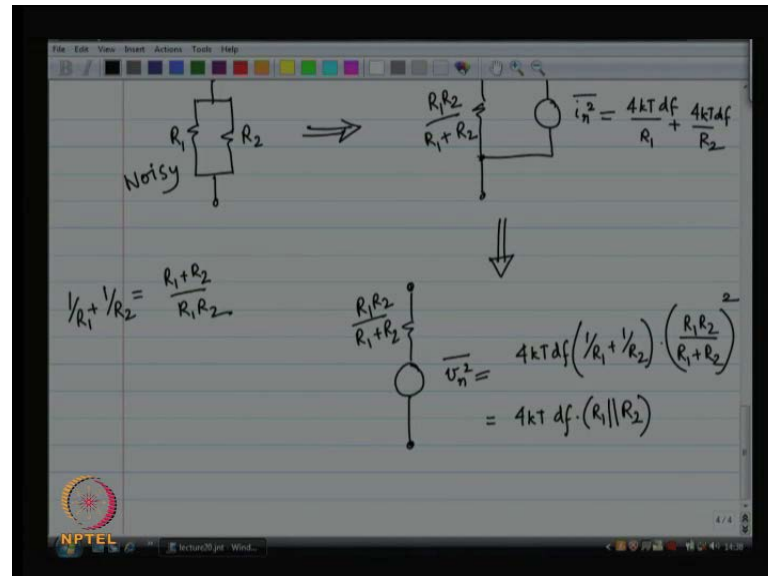 File Edit View Insert Actions Tools Help
B I
R₁ R₂
Noisy
R₁R₂/R₁+R₂
i̅ₙ̅²̅ = 4kT df/R₁ + 4kTdf/R₂
1/R₁ + 1/R₂ = R₁+R₂/R₁R₂
R₁R₂/R₁+R₂
v̅ₙ̅²̅ = 4kTdf(1/R₁ + 1/R₂)·(R₁R₂/R₁+R₂)²
= 4kT df·(R₁||R₂)
4/4
NPTEL
lecture20.jnt - Wind...
14:38